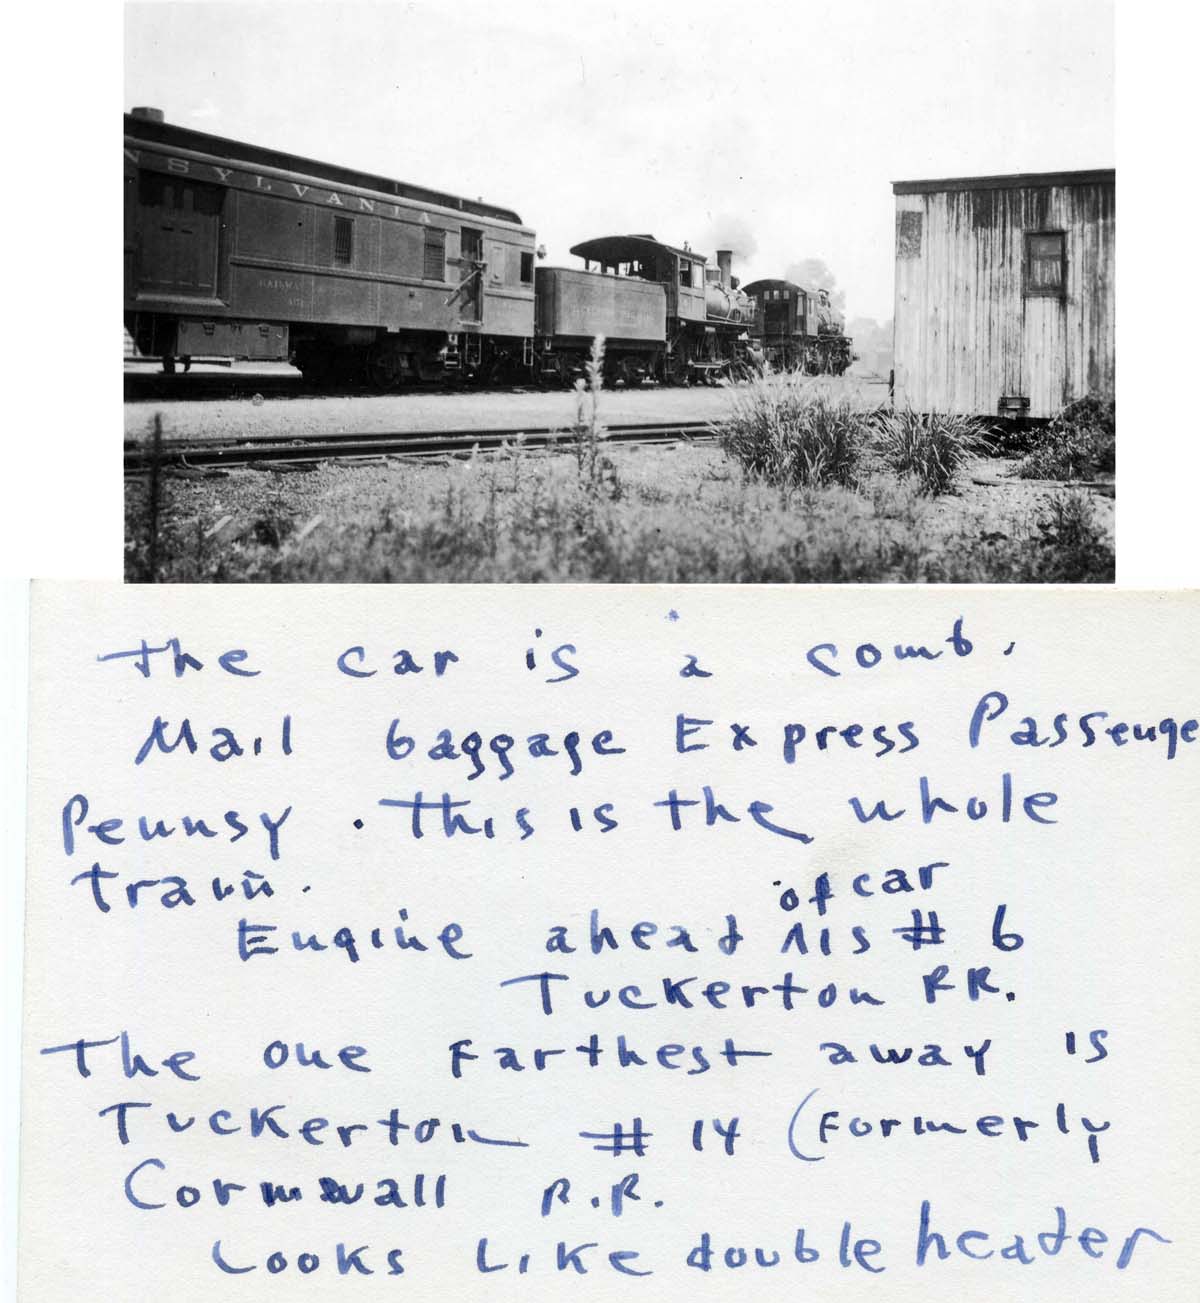 NSYLVANIA
RAILWAY
the car is a comb.
Mail baggage Express Passenge
Pennsy. This is the whole
train.
of car
Engine ahead ^ is # 6
Tuckerton RR.
The one Farthest away is
Tuckerton # 14 (Formerly
Cornwall R.R.
Looks Like double header